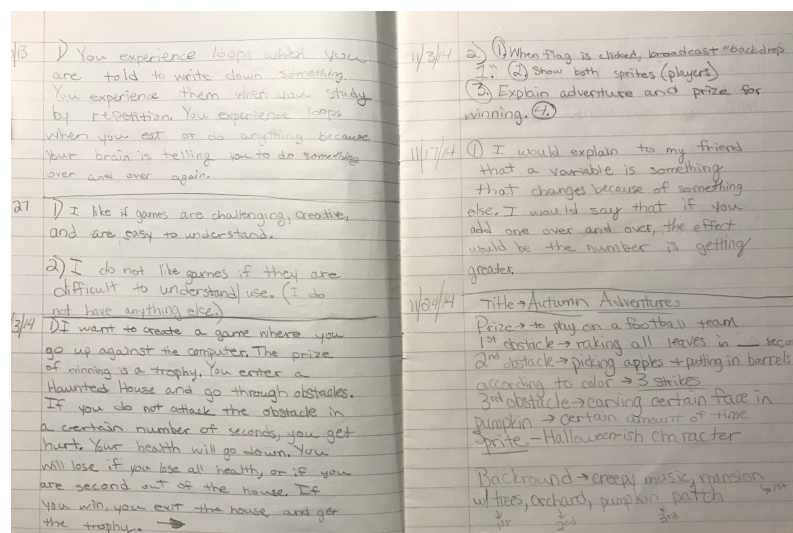 /13 1) You experience loops when you
are told to write down something.
You experience them when you study
by repetition. You experience loops
when you eat or do anything because
your brain is telling you to do something
over and over again.
27 1) I like if games are challenging, creative,
and are easy to understand.
2) I do not like games if they are
difficult to understand/use. (I do
not have anything else.)
/3/14 1) I want to create a game where you
go up against the computer. The prize
of winning is a trophy. You enter a
Haunted House and go through obstacles.
If you do not attack the obstacle in
a certain number of seconds, you get
hurt. Your health will go down. You
will lose if you lose all health, or if you
are second out of the house. If
you win, you exit the house and get
the trophy. →
11/3/14 2) ① When flag is clicked, broadcast "backdrop
1." ② Show both sprites (players)
③ Explain adventure and prize for
winning. ④
11/17/14 ① I would explain to my friend
that a variable is something
that changes because of something
else. I would say that if you
add one over and over, the effect
would be the number is getting
greater.
11/24/14 Title → Autumn Adventures
Prize → to play on a football team
1st obstacle → raking all leaves in __ secon
2nd obstacle → picking apples + putting in barrels
according to color → 3 strikes
3rd obstacle → carving certain face in
pumpkin → certain amount of time
Sprite - Halloween-ish character
Backround → creepy music, mansion
w/ trees, orchard, pumpkin patch ↘ 1st
↓ 1st ↓ 2nd ↓ 3rd